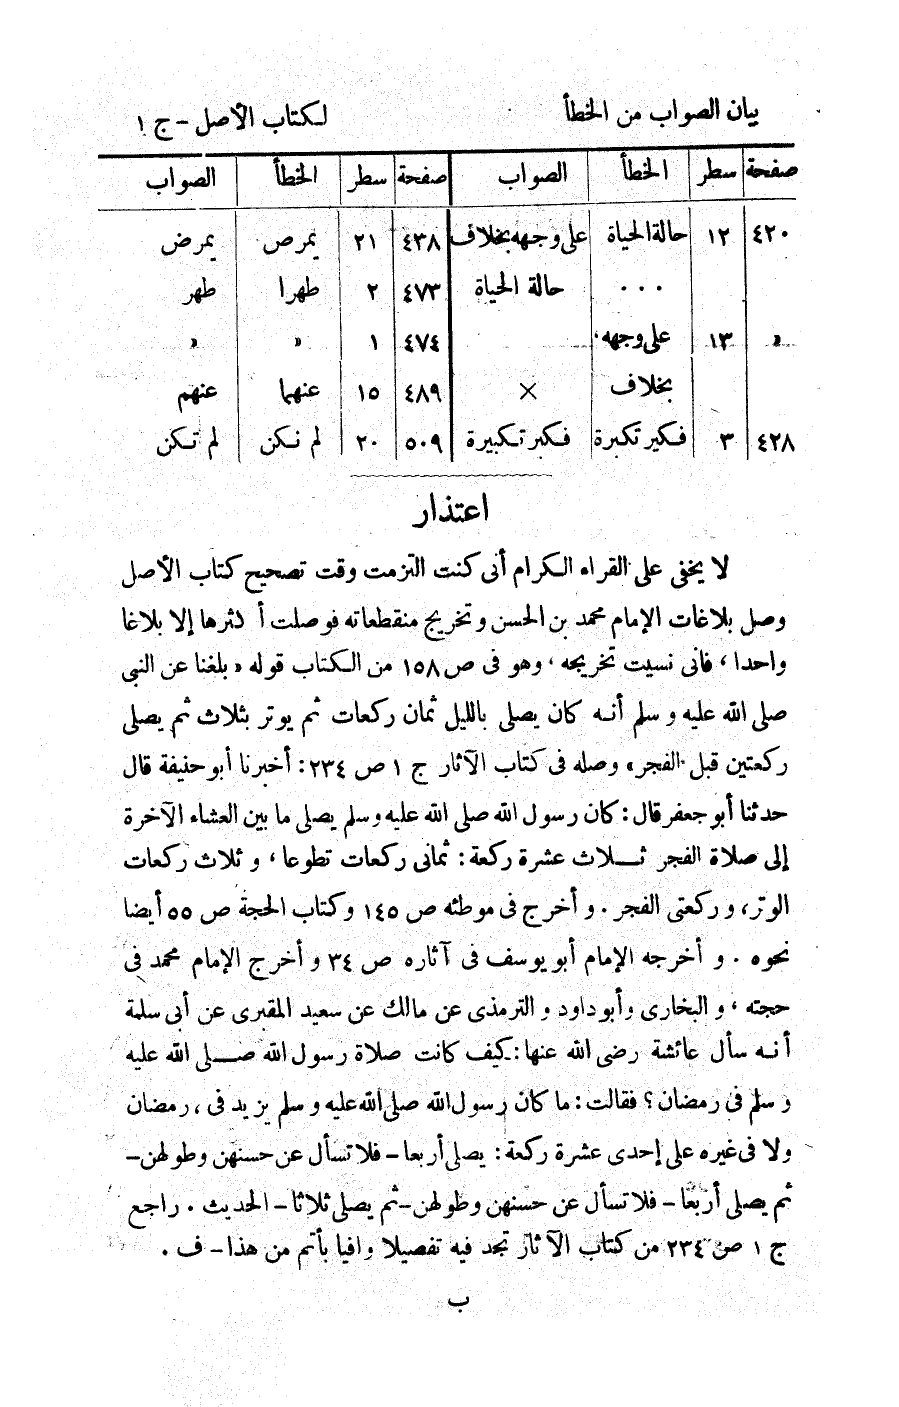 بيان الصواب من الخطأ لكتاب الأصل - ج ١
صفحة سطر الخطأ الصواب صفحة سطر الخطأ الصواب
٤٢٠ ١٢ حالة الحياة على وجهه بخلاف ٤٣٨ ٢١ يمرص يمرض
... حالة الحياة ٤٧٣ ٢ طهرا طهر
» ١٣ على وجهه ٤٧٤ ١ » »
بخلاف × ٤٨٩ ١٥ عنهما عنهم
٤٢٨ ٣ فكبر تكبرة فكبر تكبيرة ٥٠٩ ٢٠ لم نكن لم تكن
اعتذار
لا يخفى على القراء الكرام أنى كنت التزمت وقت تصحيح كتاب الأصل
وصل بلاغات الإمام محمد بن الحسن وتخريج منقطعاته فوصلت أكثرها إلا بلاغا
واحدا، فانى نسيت تخريجه، وهو فى ص ١٥٨ من الكتاب قوله «بلغنا عن النبى
صلى الله عليه و سلم أنه كان يصلى بالليل ثمان ركعات ثم يوتر بثلاث ثم يصلى
ركعتين قبل الفجر» وصله فى كتاب الآثار ج ١ ص ٢٣٤: أخبرنا أبو حنيفة قال
حدثنا أبو جعفر قال: كان رسول الله صلى الله عليه وسلم يصلى ما بين العشاء الآخرة
إلى صلاة الفجر ثلاث عشرة ركعة: ثمانى ركعات تطوعا، و ثلاث ركعات
الوتر، و ركعتى الفجر. و أخرج فى موطئه ص ١٤٥ وكتاب الحجة ص ٥٥ أيضا
نحوه. و أخرجه الإمام أبو يوسف فى آثاره ص ٣٤ و أخرج الإمام محمد فى
حجته، و البخارى وأبو داود و الترمذى عن مالك عن سعيد المقبرى عن أبى سلمة
أنه سأل عائشة رضى الله عنها: كيف كانت صلاة رسول الله صلى الله عليه
و سلم فى رمضان؟ فقالت: ما كان رسول الله صلى الله عليه و سلم يزيد فى رمضان
ولا فى غيره على إحدى عشرة ركعة: يصلى أربعا - فلا تسأل عن حسنهن وطولهن -
ثم يصلى أربعا - فلا تسأل عن حسنهن وطولهن - ثم يصلى ثلاثا - الحديث. راجع
ج ١ ص ٢٣٤ من كتاب الآثار تجد فيه تفصيلا وافيا بأتم من هذا - ف.
ب